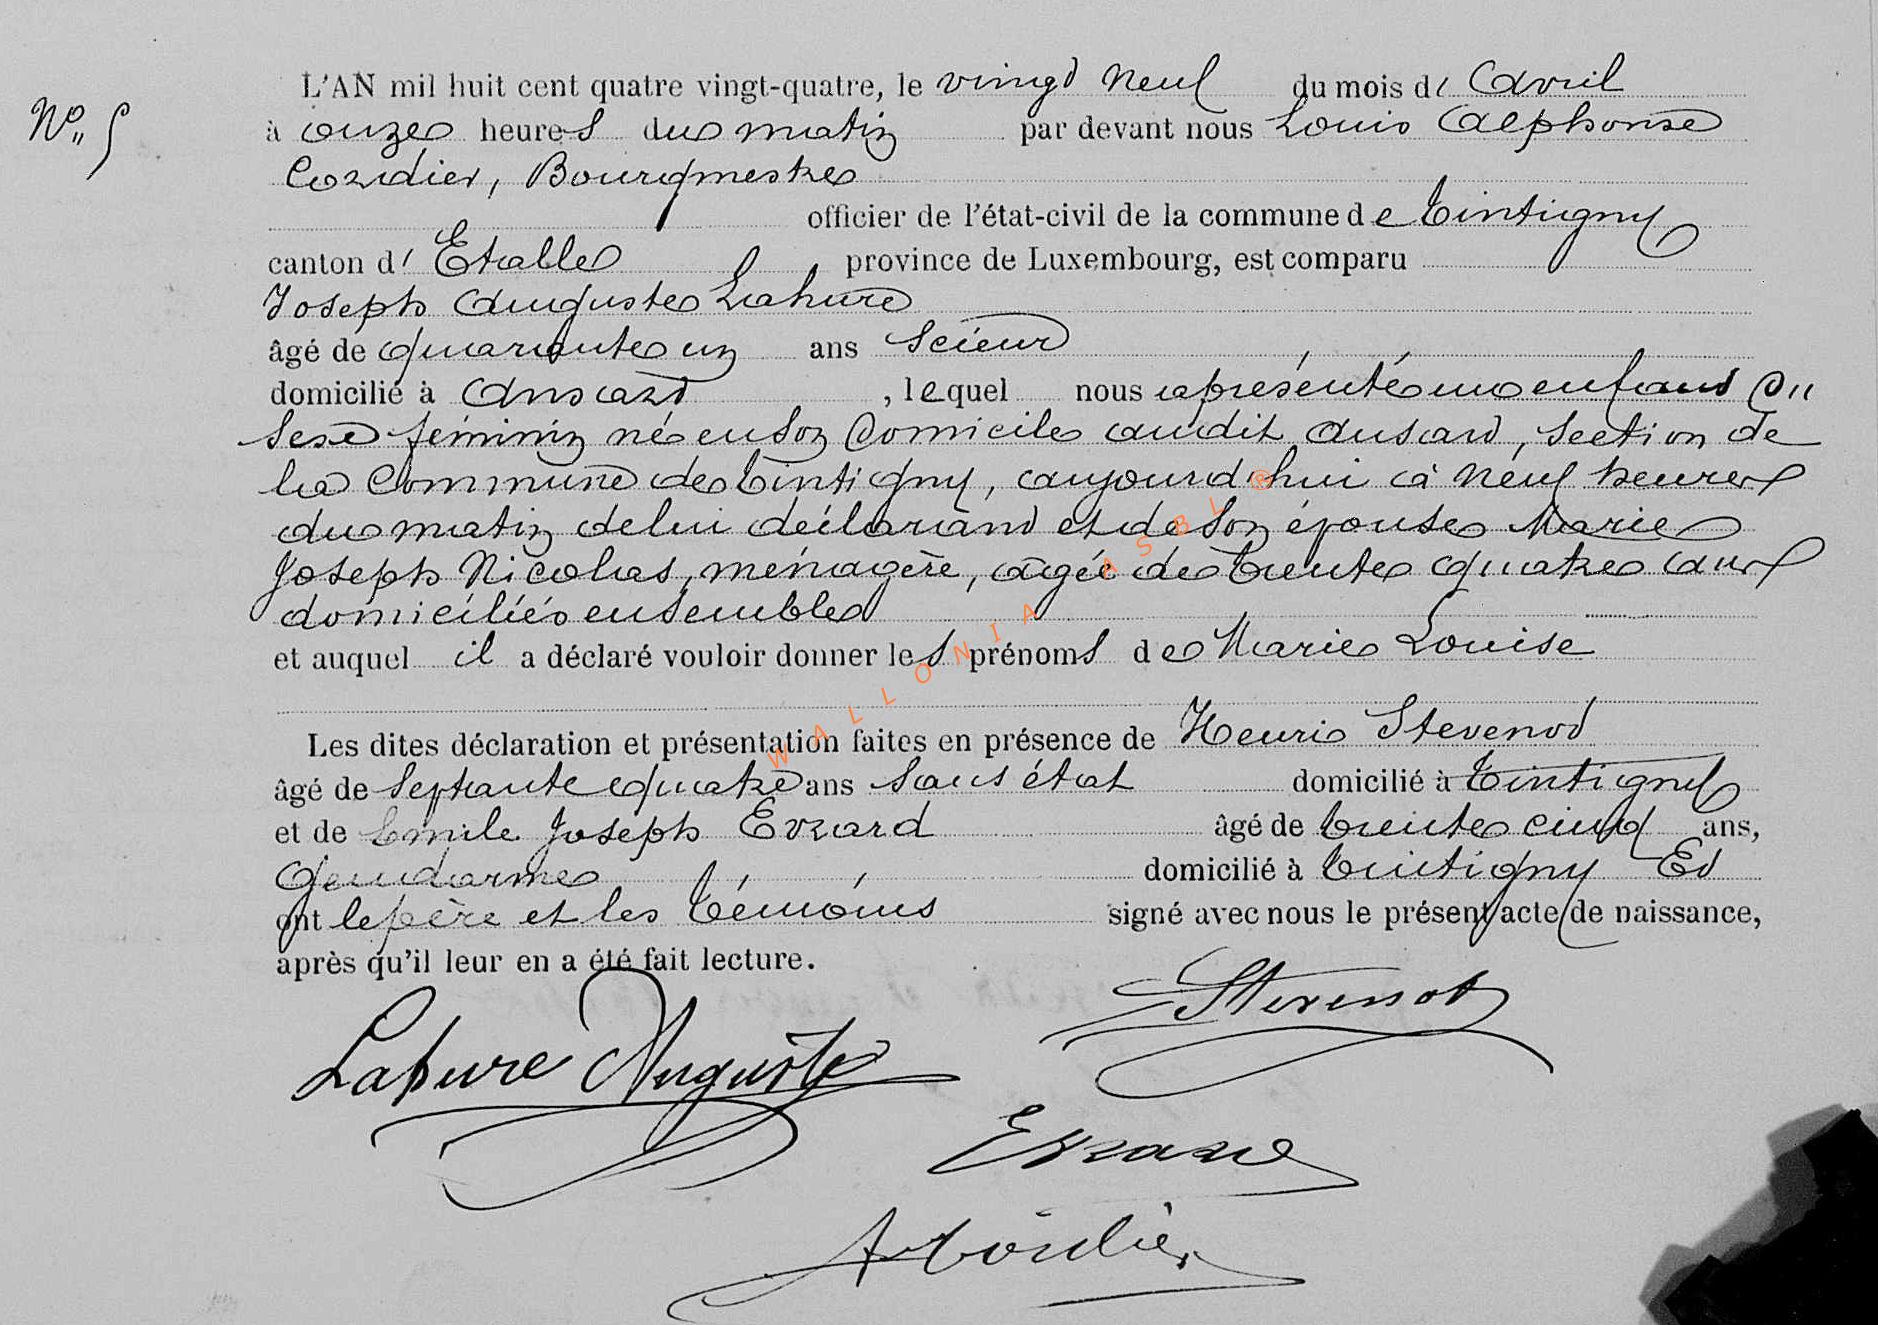 L'AN mil huit cent quatre vingt-quatre, le vingt neuf du mois d' Avril
N° 5
à onze heures du matin par devant nous Louis Alphonse
Cordier, Bourgmestre
officier de l'état-civil de la commune de Tintigny
canton d' Etalle province de Luxembourg, est comparu
Joseph Auguste Lahure
âgé de quarante un ans scieur
domicilié à Ansart , lequel nous a présenté un enfant du
sexe féminin né en son domicile audit Ansart, section de
la Commune de Tintigny, aujourd'hui à neuf heures
du matin de lui déclarant et de son épouse Marie
Joseph Nicolas, ménagère, âgée de trente quatre ans
domiciliés ensemble
et auquel il a déclaré vouloir donner les prénoms de Marie Louise
Les dites déclaration et présentation faites en présence de Henri Stevenot
âgé de septante quatre ans sans état domicilié à Tintigny
et de Emile Joseph Evrard âgé de trente cinq ans,
Gendarme domicilié à Tintigny Et
ont le père et les témoins signé avec nous le présent acte de naissance,
après qu'il leur en a été fait lecture.
Stevenot
Lahure Auguste
Evrard
A Cordier
WALLONIA ASBL ®